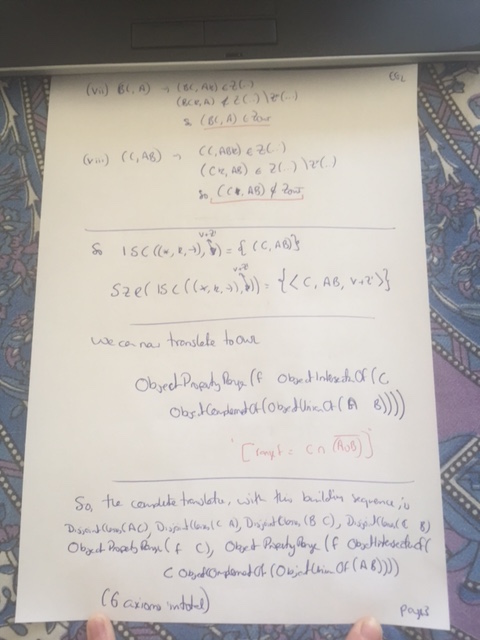 (vii) BC, A) → (BC, Ak) ∈ Z(..)
(BCk, A) ∉ Z(..) \ Z'(...)
So (BC, A) ∈ Zout
(viii) (C, AB) → (C, ABk) ∈ Z(..)
(Ck, AB) ∈ Z(..) \ Z'(..)
So (Ck, AB) ∉ Zout
So ISC((*, k, →), ) = { (C, AB)}
v+z'
Sze( ISC((*, k, →), )) = {< C, AB, v+z'>}
We can now translate to OWL
ObjectPropertyRange(f ObjectIntersectionOf(C
ObjectComplementOf(ObjectUnionOf(A B))))
C ∩ (A∪B)]
So, the complete translation, with this building sequence, is
DisjointClasses(A C), DisjointClasses(C A), DisjointClasses(B C), DisjointClasses(C B)
ObjectPropertyRange(f C), ObjectPropertyRange(f ObjectIntersectionOf(
C ObjectComplementOf(ObjectUnionOf(A B))))
(6 axioms in total)
page 3